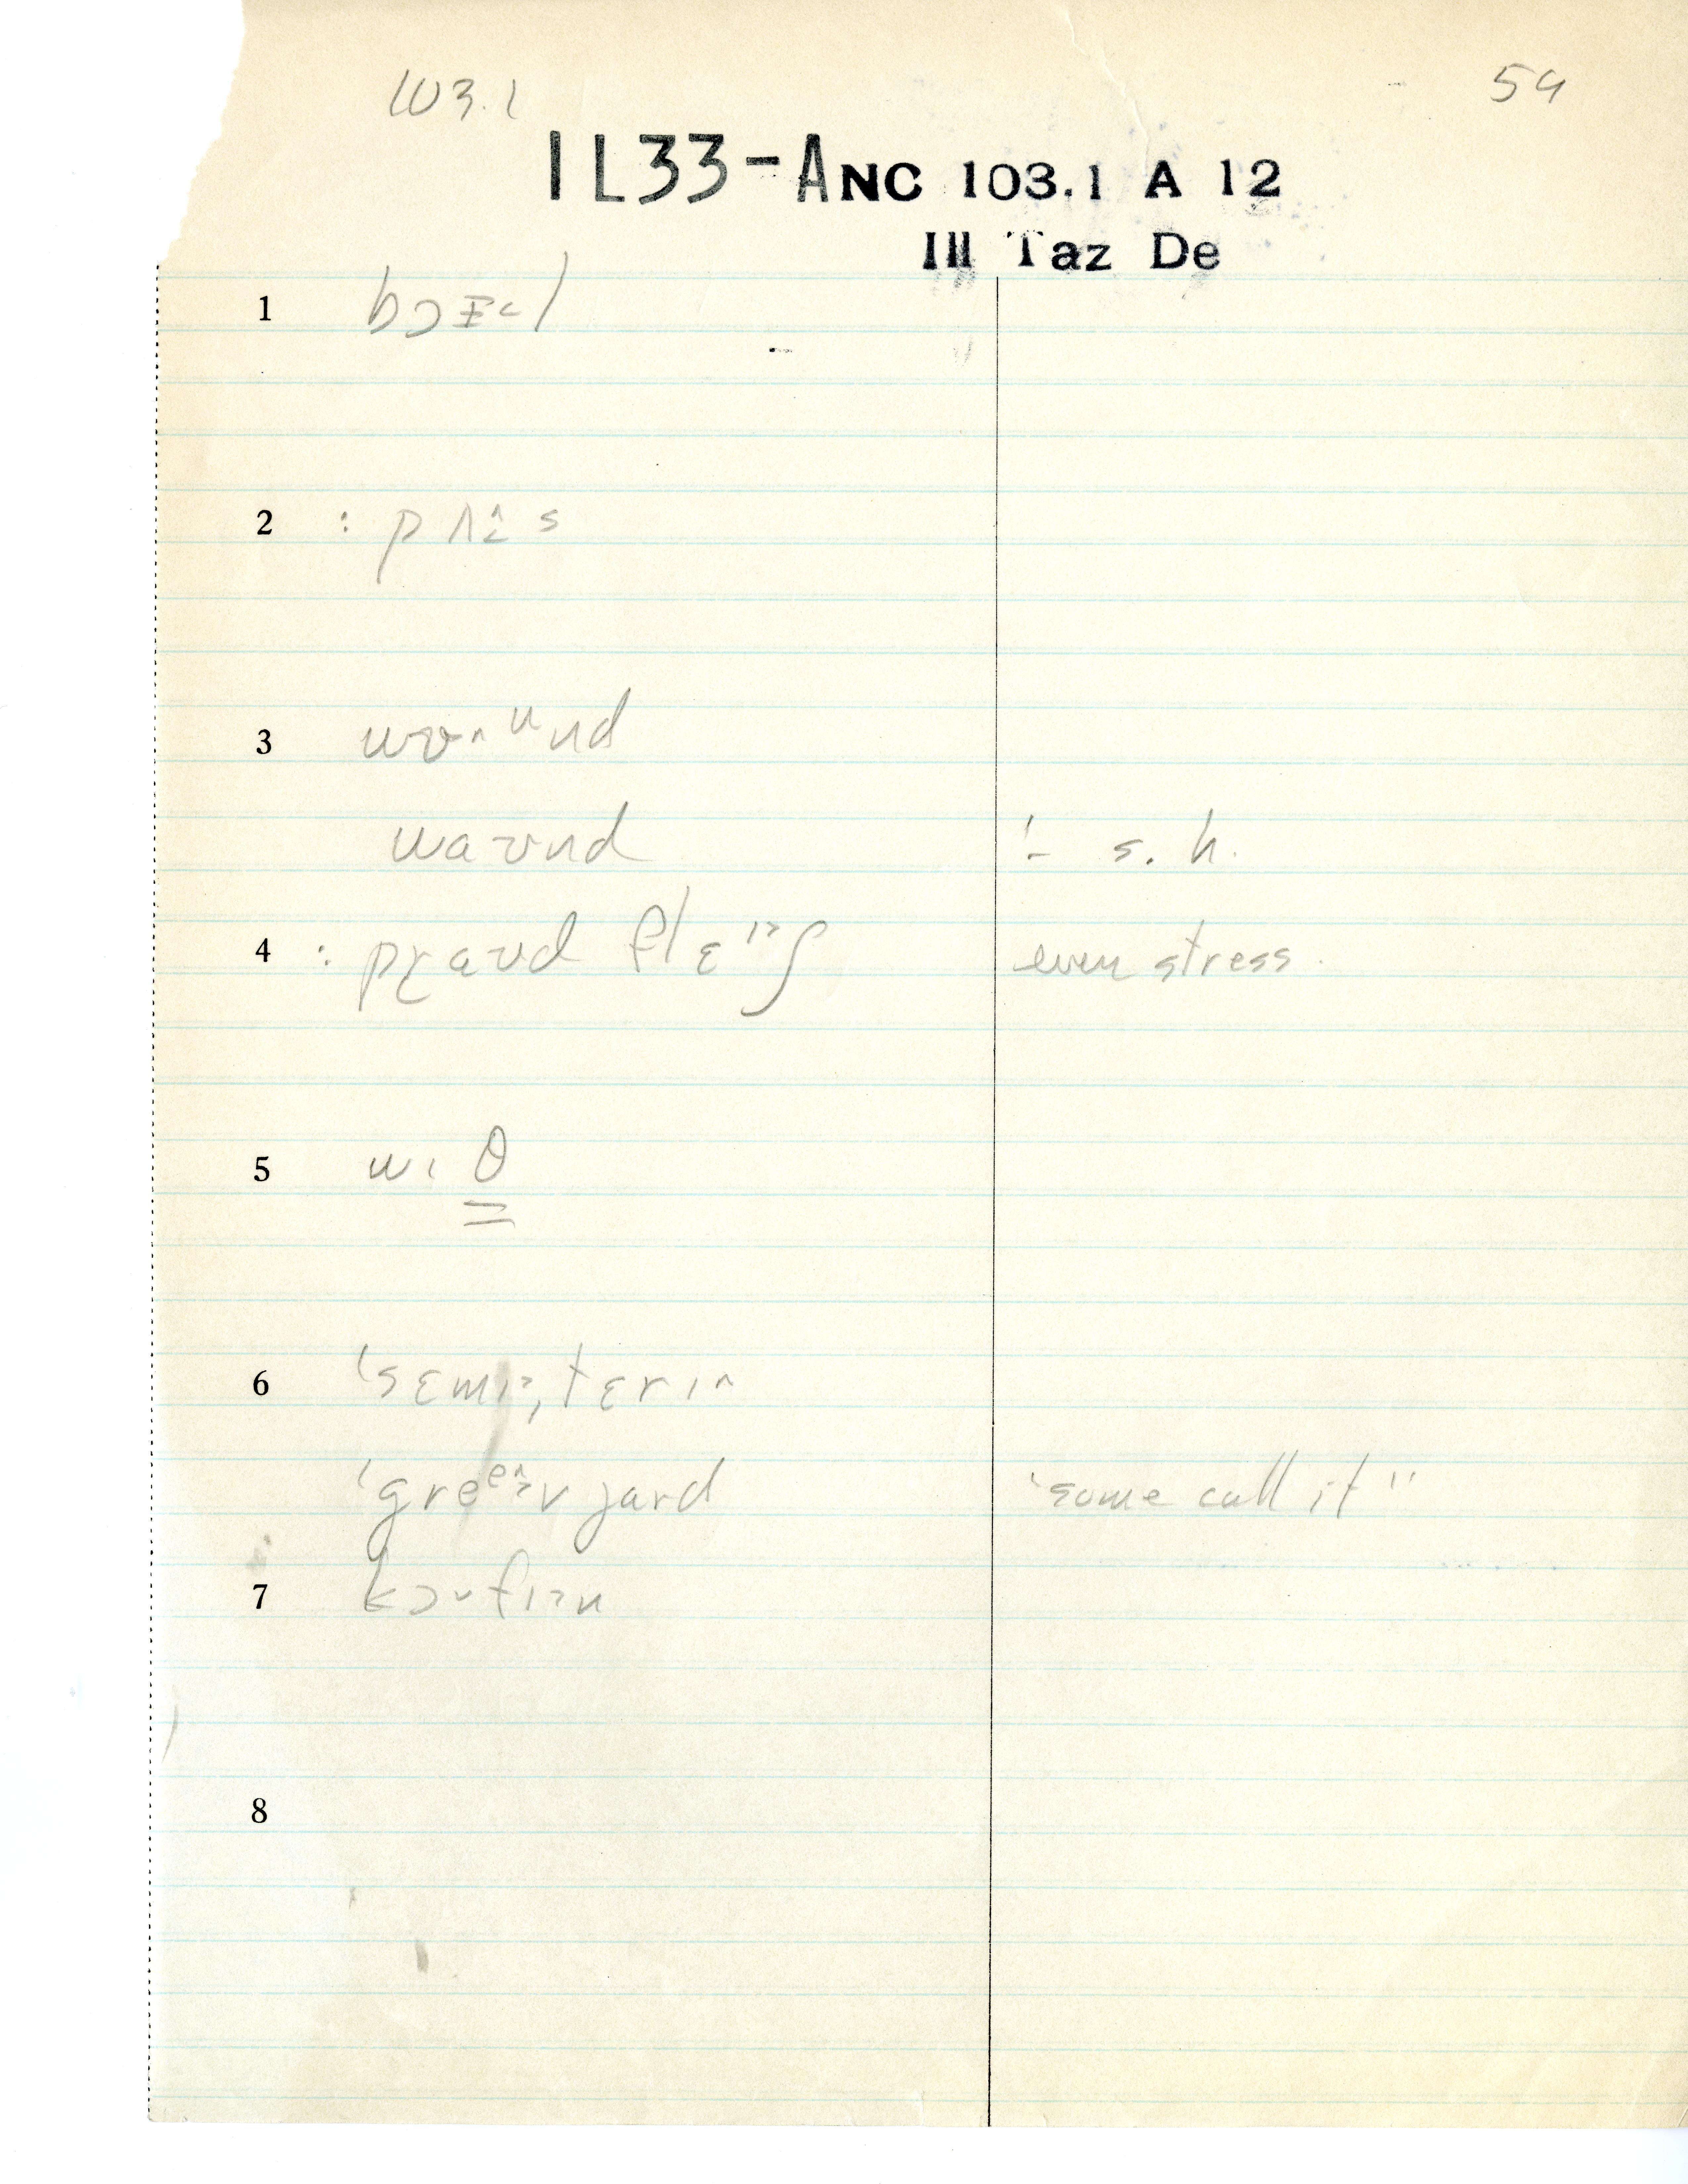 103.1 54
IL33-ANC 103.1 A 12
Ill Taz De
1 bɔɪ˂l
2 : pʌɪ̂˂s
3 wʊ˄ᵘnd
waʊnd ! – s. h.
4 : praʊd flɛᶦ˃ʃ even stress.
5 wɪ θ
6 ˈsɛmɪ˃ˌtɛrɪ˄
ˈgreᵉ˄˃v jard "some call it"
7 kɔ˅fɪ˃n
8